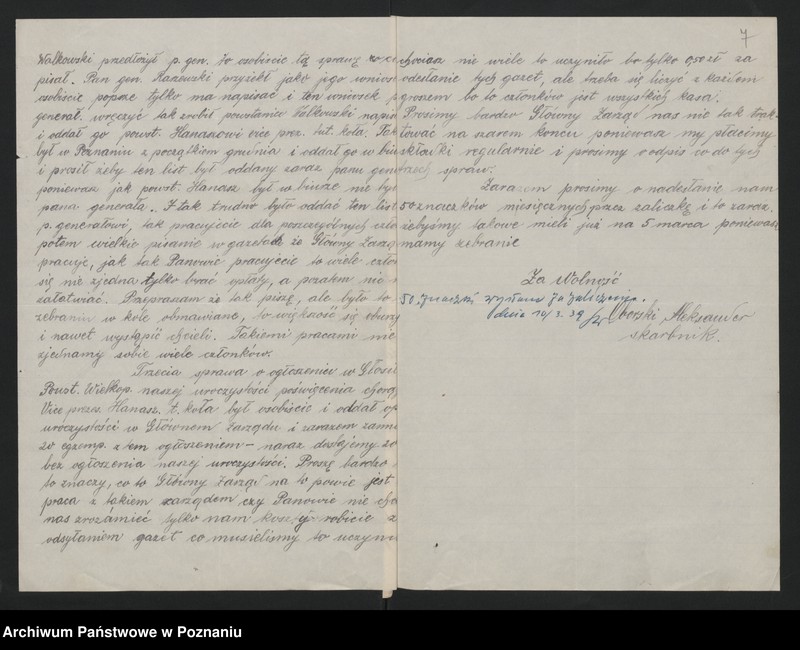 Walkowski przedłożył p. gen. że osobiście tą sprawę
pisał. Pan gen. Raszewski przyżekł jako jego wniosek
osobiście poprze tylko ma napisać i ten wniosek p
generał. wręczyć tak zrobił powstaniec Wałkowski napisał
i oddał go powst. Hanaszowi vice prez. tut. koła. Tak
był w Poznaniu z początkiem grudnia i oddał go w biu
i prosił żeby ten list był oddany zaraz panu gen
ponieważ jak powst. Hanasz był w biurze nie był
pana generała. I tak trudno było oddać ten list
p. generałowi, tak pracujecie dla poszczególnych czło
potem wielkie pisanie w gazetach że Główny Zarząd
pracuje, jak tak Panowie pracujecie to wiele człon
się nie zjedna tylko brać opłaty, a pozatem nie
załatwiać. Przepraszam że tak piszę, ale było to
zebraniu w kole obmawiane, to większość się oburzy
i nawet wystąpić chcieli. Takiemi pracami nie
zjednamy sobie wiele członków.
Trzecia sprawa o ogłoszeniu w Głosie
Powst. Wielkop. naszej uroczystości poświęcenia chorąg
Vice prezes Hanasz t. koła był osobiście i oddał
uroczystości w Głównem Zarządu i zarazem zamó
20 egzemp. z tem ogłoszeniem – naraz dostajemy 20
bez ogłoszenia naszej uroczystości. Proszę bardzo
to znaczy, co to Główny Zarząd na to powie jest
praca z takiem zarządem czy Panowie nie chcą
nas zrozumieć tylko nam koszty robicie z
odsyłaniem gazet co musieliśmy to uczynić
7
chociaż nie wiele to uczyniło bo tylko 0,50 zł za
odesłanie tych gazet, ale trzeba się liczyć z każdem
groszem bo to członków jest wszystkich kasa.
Prosimy bardzo Główny Zarząd nas nie tak trak-
tować na szarem końcu ponieważ my płacimy
składki regularnie i prosimy o odpis co do tych
trzech spraw.
Zarazem prosimy o nadesłanie nam
50 znaczków miesięcznych przez zaliczkę i to zaraz
żebyśmy takowe mieli już na 5 marca ponieważ
mamy zebranie
Za Wolność
50. znaczki wysłano za zaliczeniem.
dnia 10/3. 39
Oborski Aleksander
skarbnik.
Archiwum Państwowe w Poznaniu